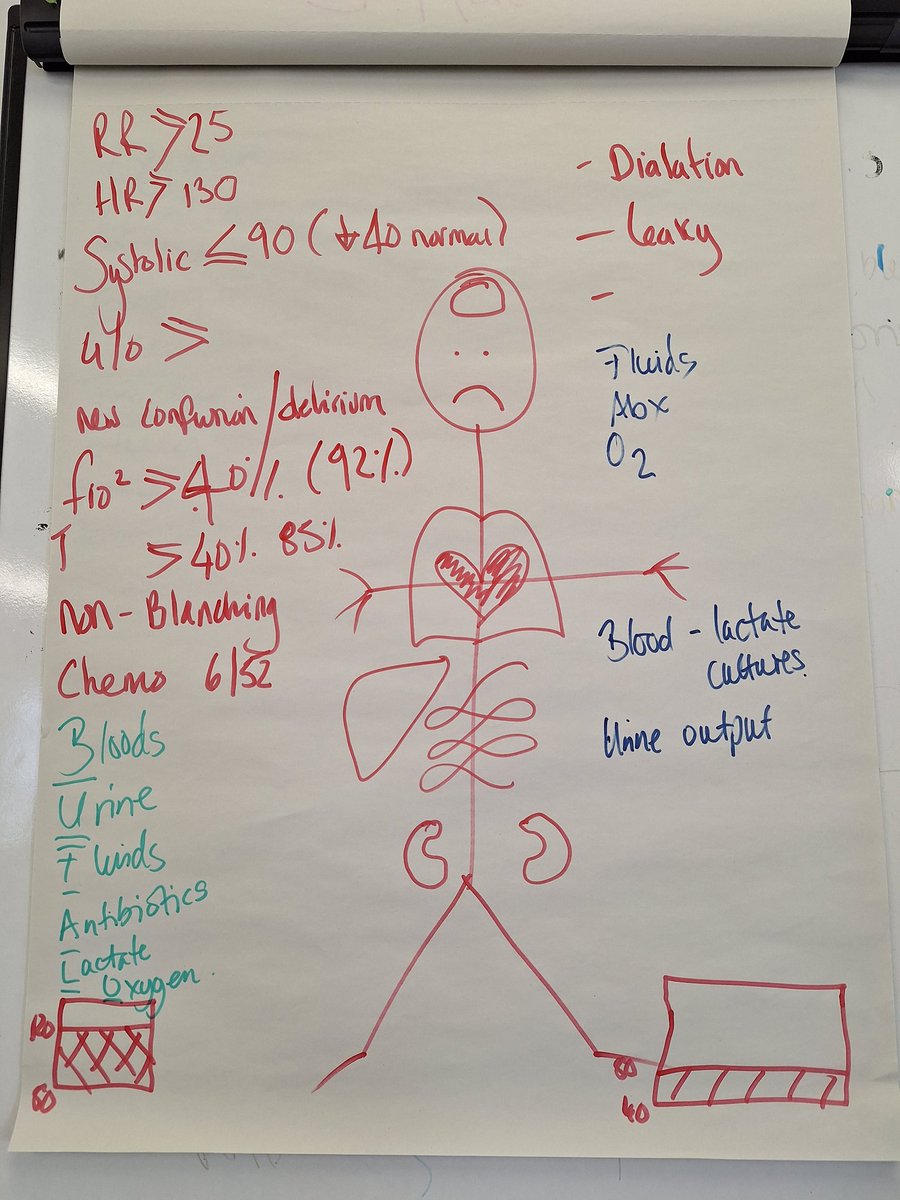 RR ≥25
HR ≥ 130
Systolic ≤ 90 (↓40 normal)
u/o ≥
new confusion/delirium
fio² ≥40% (92%)
≥40% 85%
Non-Blanching
Chemo 6/52
Bloods
Urine
Fluids
Antibiotics
Lactate
Oxygen.
120
60
- Dialation
- leaky
-
Fluids
Abx
O2
Blood - lactate
cultures.
Urine output
60
40